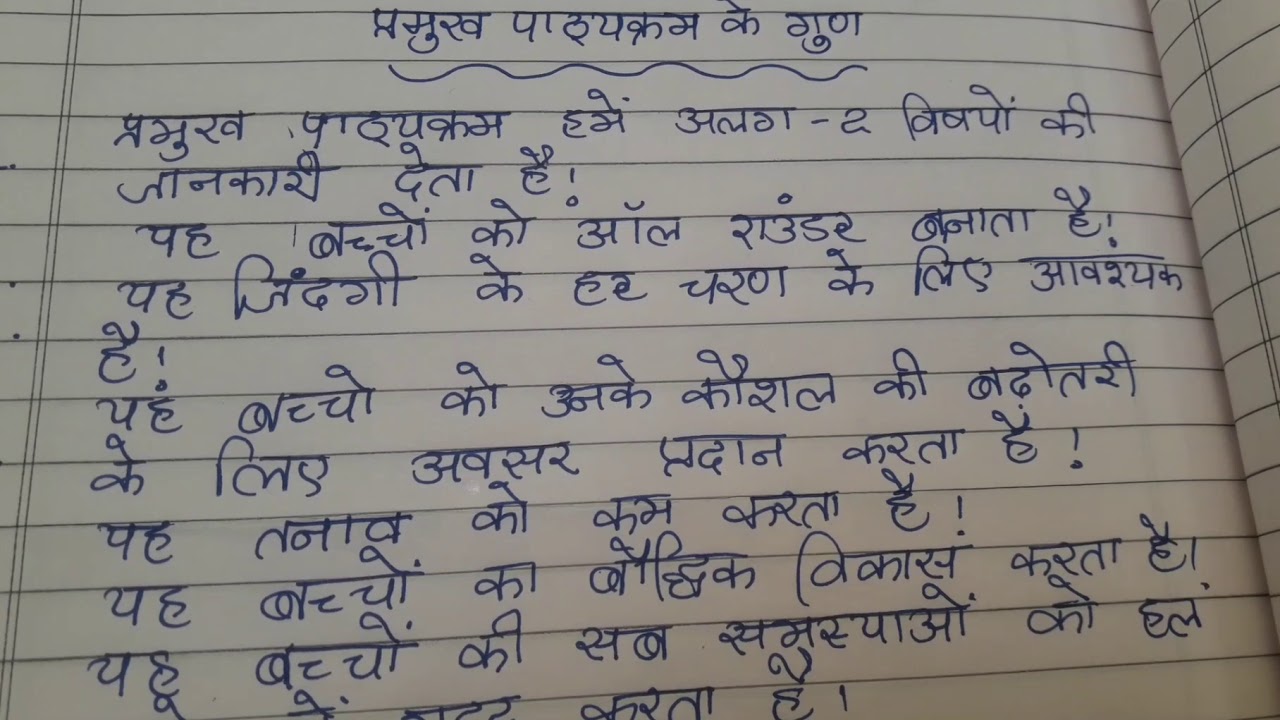 प्रमुख पाठ्यक्रम के गुण
प्रमुख पाठ्यक्रम हमें अलग-2 विषयों की
जानकारी देता है।
यह बच्चों को ऑल राउंडर बनाता है।
यह जिंदगी के हर चरण के लिए आवश्यक
है।
यह बच्चो को उनके कौशल की बढ़ोतरी
के लिए अवसर प्रदान करता है।
यह तनाव को कम करता है।
यह बच्चों का बौद्धिक विकास करता है।
यह बच्चों की सब समस्याओं को हल
में मदद करता है।